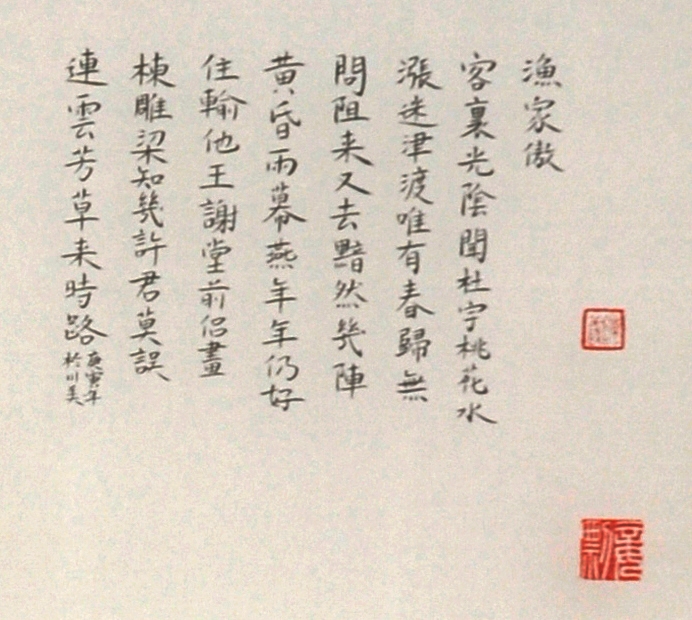 漁家傲
客裏光陰聞杜宇桃花水
漲迷津渡唯有春歸無
問阻来又去黯然幾陣
黄昏雨幕燕年年仍好
住輸他王謝堂前侣畫
棟雕梁知幾許君莫誤
連雲芳草来時路
庚寅年
於川美